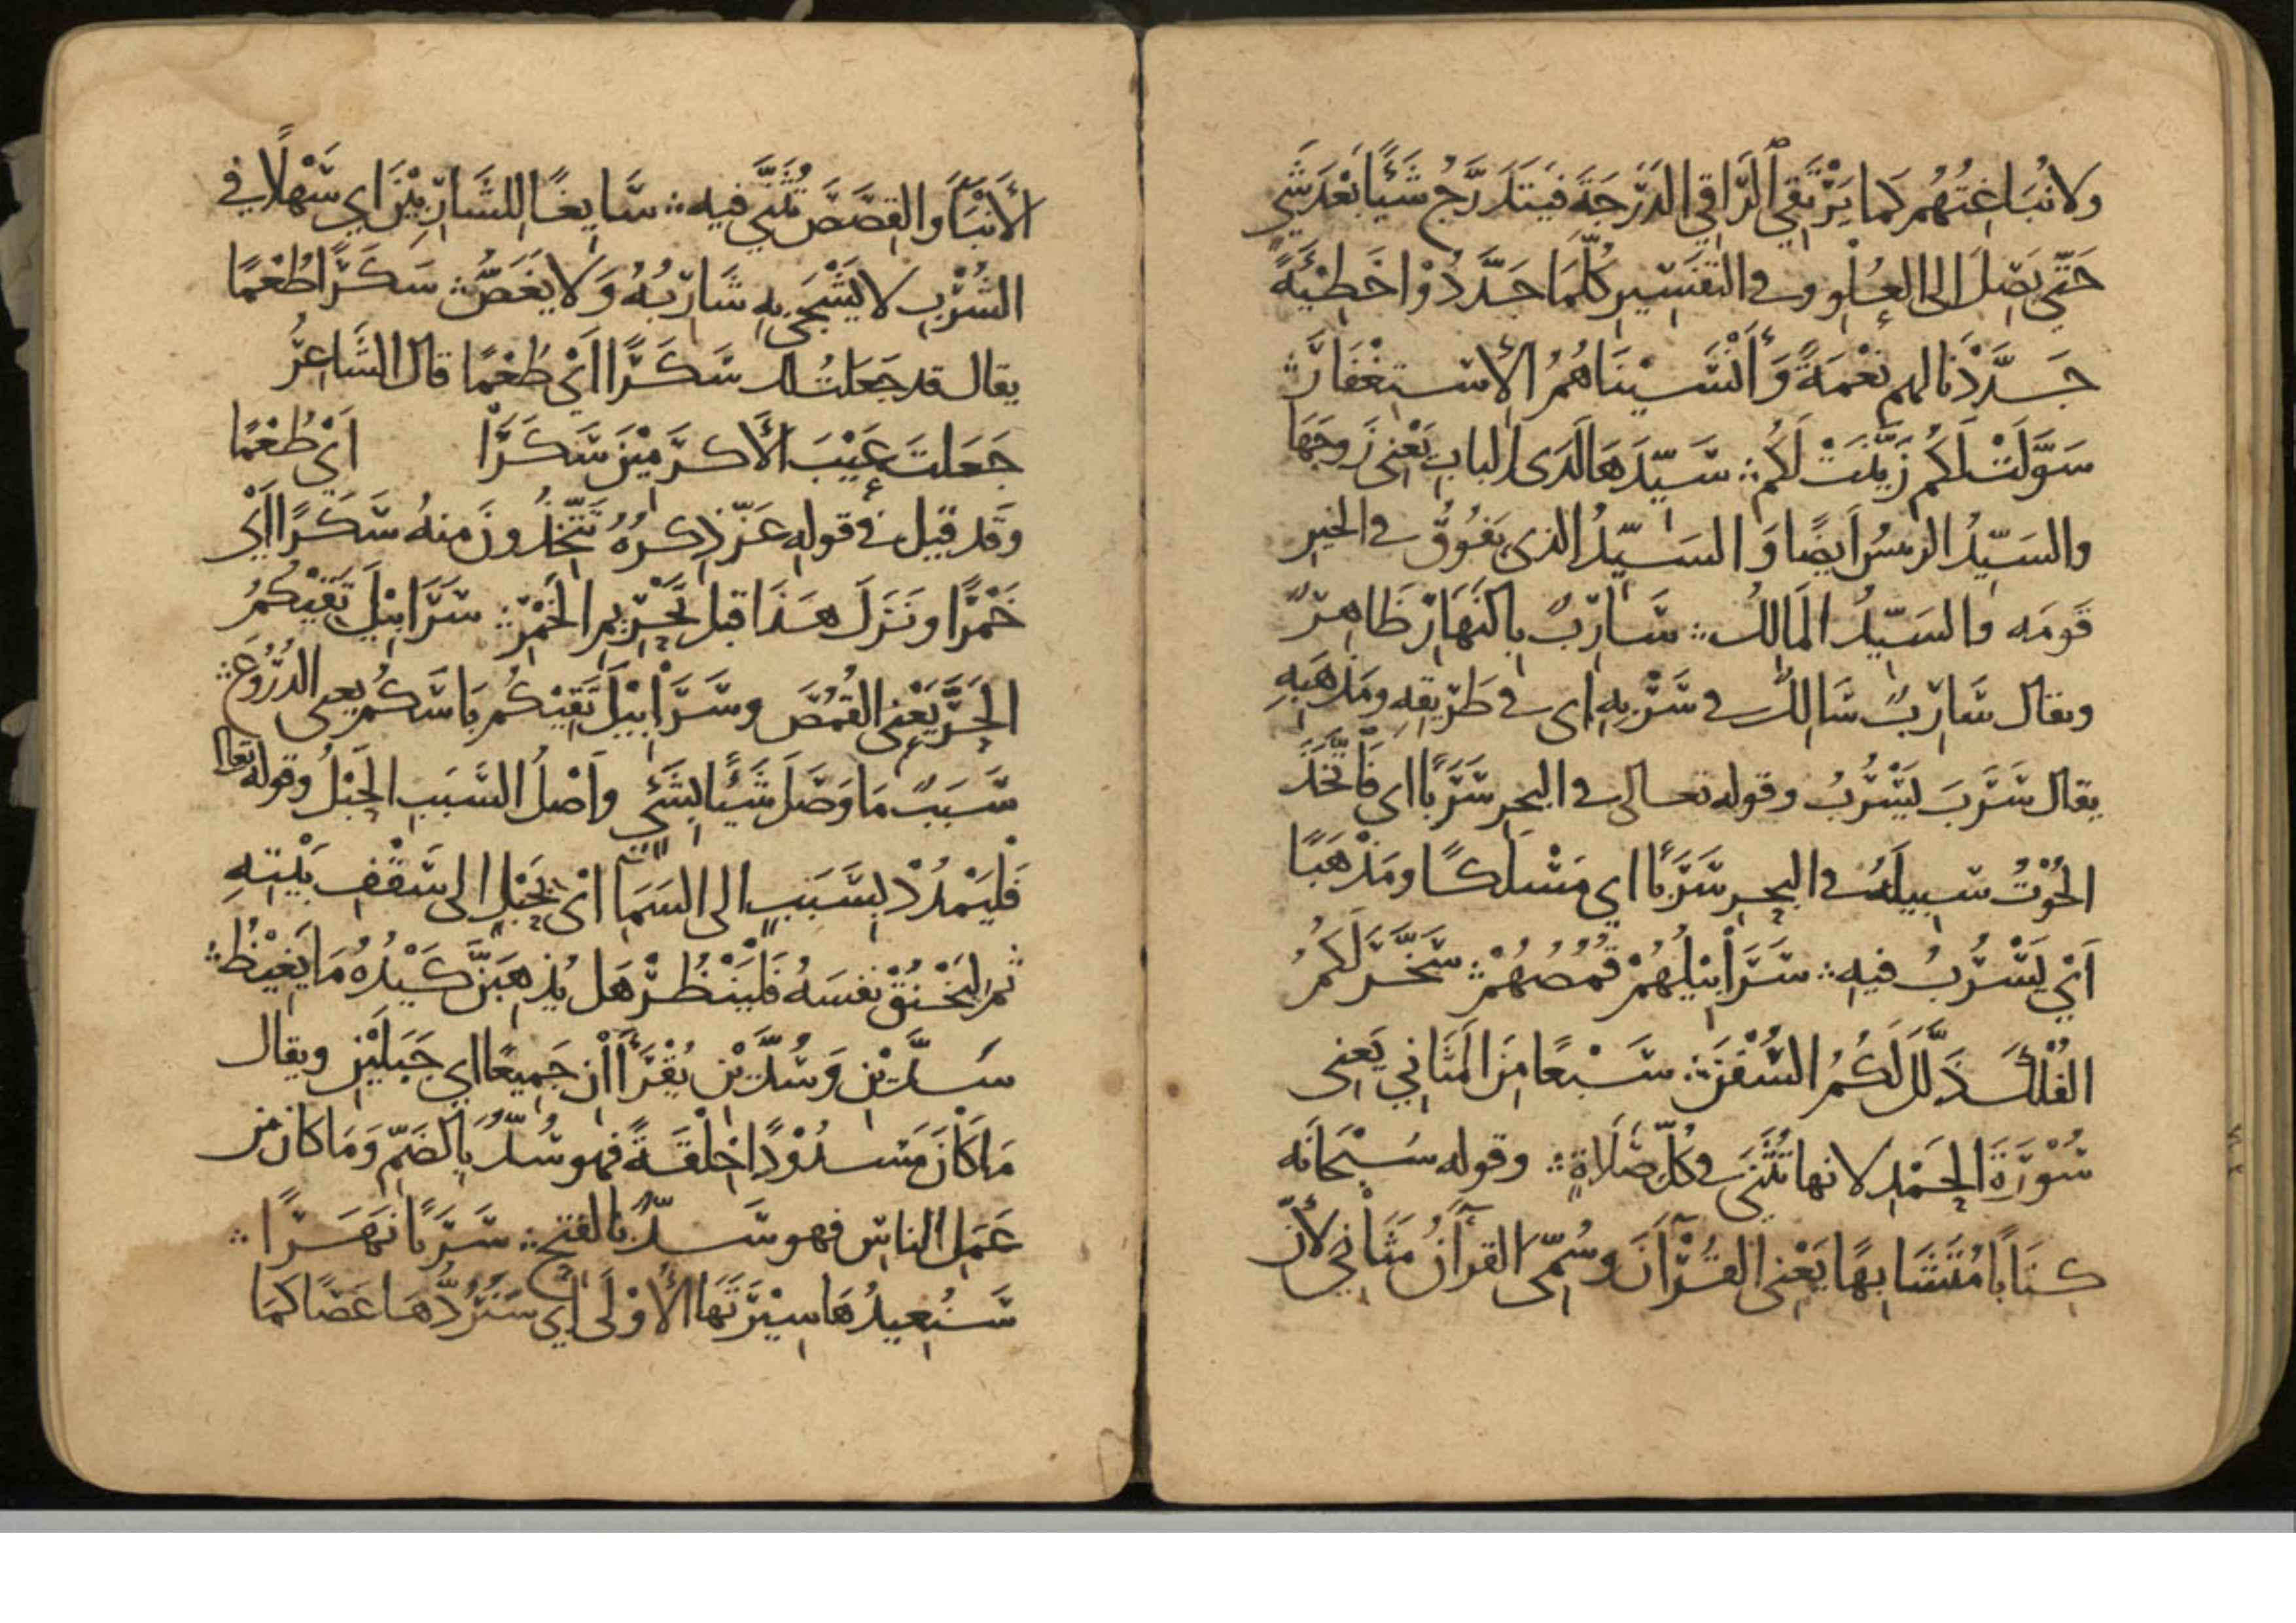 ولا نُبَاغِتُهُم كَما يَرْتَقي الرَّاقي الدَرَجَةَ فيَتَدَرَّجُ شَيْئًا بَعْدَ شَيْءٍ
حَتّى يَصِلَ الى العُلْوِ وفى التَفسِيرِ كُلَّمَا جَدَّدُوْا خَطِيْئَةً
جَدَّدْنا لهم نِعْمَةً وَأَنْسَيْنَاهُمُ الإستِغفَارَ ؞
سَوَّلَتْ لَكُم زَيَّنَتْ لَكُم ؞ سَيِّدَهَا لَدَى الباب يَعْنى زَوجَهَا
والسَيِّدُ الرئيسُ اَيضًا وَالسَيِّدُ الذى يَفُوْقُ فى الخيرِ
قَومَه والسَيِّدُ المَالِكُ ؞ سَارِبٌ بِالنَهَارِ ظَاهِرٌ
ويقال سَارِبٌ سَالِكٌ فى سَرْبِهِ اى فى طَرِيقِهِ ومَذهَبِهِ
يقال سَرَبَ يَسْرُبُ وقوله تعالى فى البحرِ سَرَبًا اى فَاتَّخَذَ
الحُوْتُ سَبِيلَهُ فى البحرِ سَرَبًا اي مَسْلَكًا ومَذْهَبًا
اَيْ يَسْرُبُ فيهِ ؞ سَرَابِيْلُهُمْ قُمُصُهُمْ ؞ سَخَّرَ لَكُمُ
الفُلْكَ ذَلَّلَ لَكُمُ السُفُنَ ؞ سَبْعًا مِنَ المَثَانِي يَعنِى
سُوْرَةَ الحَمْدِ لانها تُثَنَّى فى كُلِّ صَلَاةٍ ؞ وقوله سُبْحَانَه
كِتَابًا مُتَشَابِهًا يَعْنِى القُرْآنَ وسُمِّىَ القرآنُ مَثَانِيَ لأَنّ
الأَنْبَاءَ والقِصَصَ تُثَنَّى فيه ؞ سَايغًا للشَارِبِيْنَ اي سَهْلًا في
الشُرْبِ لا يَشْجَى بِهِ شَارِبُهُ وَلا يَغَصُّ ؞ سَكَرًا طُعْمًا
يقال قد جَعَلتُ لك سَكَرًا اَيْ طُعْمًا قال الشَاعِرُ
جَعَلتَ عَيْبَ الأَكرَمِيْنَ سَكَرَا اَيْ طُعْمًا
وقَد قيْل فى قوله عَزّ ذِكرُهُ تَتَّخِذُونَ مِنهُ سَكَرًا اَيْ
خَمْرًا ونَزَلَ هَذَا قبل تَحْرِيمِ الخَمْرِ ؞ سَرَابِيْلَ تَقِيْكُمُ
الحَرَّ يَعْنِى القُمُصَ وسَرَابِيْلَ تَقِيْكُم بَاسَكُم يعنى الدُرُوعَ ؞
سَبَبٌ مَا وَصَلَ شَيْئًا بِشَيْءٍ وأَصْلُ السَبَبِ الحَبْلُ وقوله تعالى
فَليَمْدُدْ بِسَبَبٍ الى السَمَاءِ اىْ بِحَبْلٍ الى سَقْفِ بَيْتِهِ
ثم ليَخْنُقْ نَفسَهُ فَليَنْظُرْ هَل يُذهِبَنَّ كَيْدُهُ مَا يَغِيْظُ ؞
سَدَّيْنِ وَسُدَّيْنِ يُقْرَأَانِ جَمِيْعًا اي جَبَلَيْنِ ويقال
مَا كَانَ مَسْدُوْدًا خِلْقَةً فهو سُدٌّ بِالضَمِّ وَمَا كان مِن
عَمَلِ الناسِ فهو سَدٌّ بالفَتحِ ؞ سَرِيًّا نَهَرًا ؞
سَنُعِيدُهَا سِيْرَتَهَا الأُوْلَى اي سَنَرُدُّهَا عَصًا كَمَا